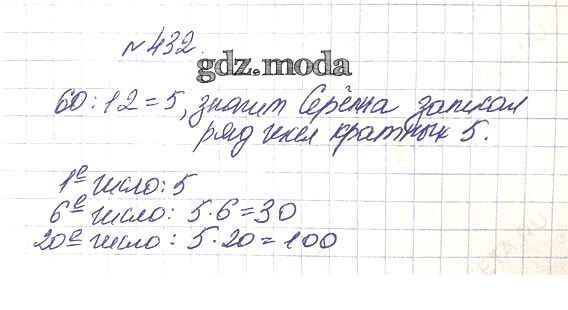 №432.
gdz.moda
60:12=5, значит Серёжа записал
ряд чисел кратных 5.
1е число: 5
6е число: 5·6=30
20е число: 5·20=100